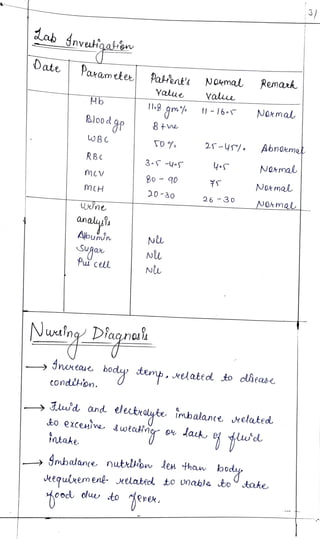 3/
Lab Investigation
Date Parameter Patient's Normal Remark
Value Value
Hb 11.8 gm% 11-16.5 Normal
Blood gp B+ve
WBC 50 %. 25-45%. Abnormal
RBC 3.5-4.5 4.5 Normal
MCV 80 - 90 75 Normal
MCH 20-30 26-30 Normal
Urine
analysis
Albumin Nil
Sugar Nil
Pus cell Nil
Nursing Diagnosis
→ Increase body temp. related to disease
condition.
→ Fluid and electrolyte imbalance related
to excessive sweating or lack of fluid
intake.
→ Imbalance nutrition less than body
requirement related to unable to take
food due to fever.